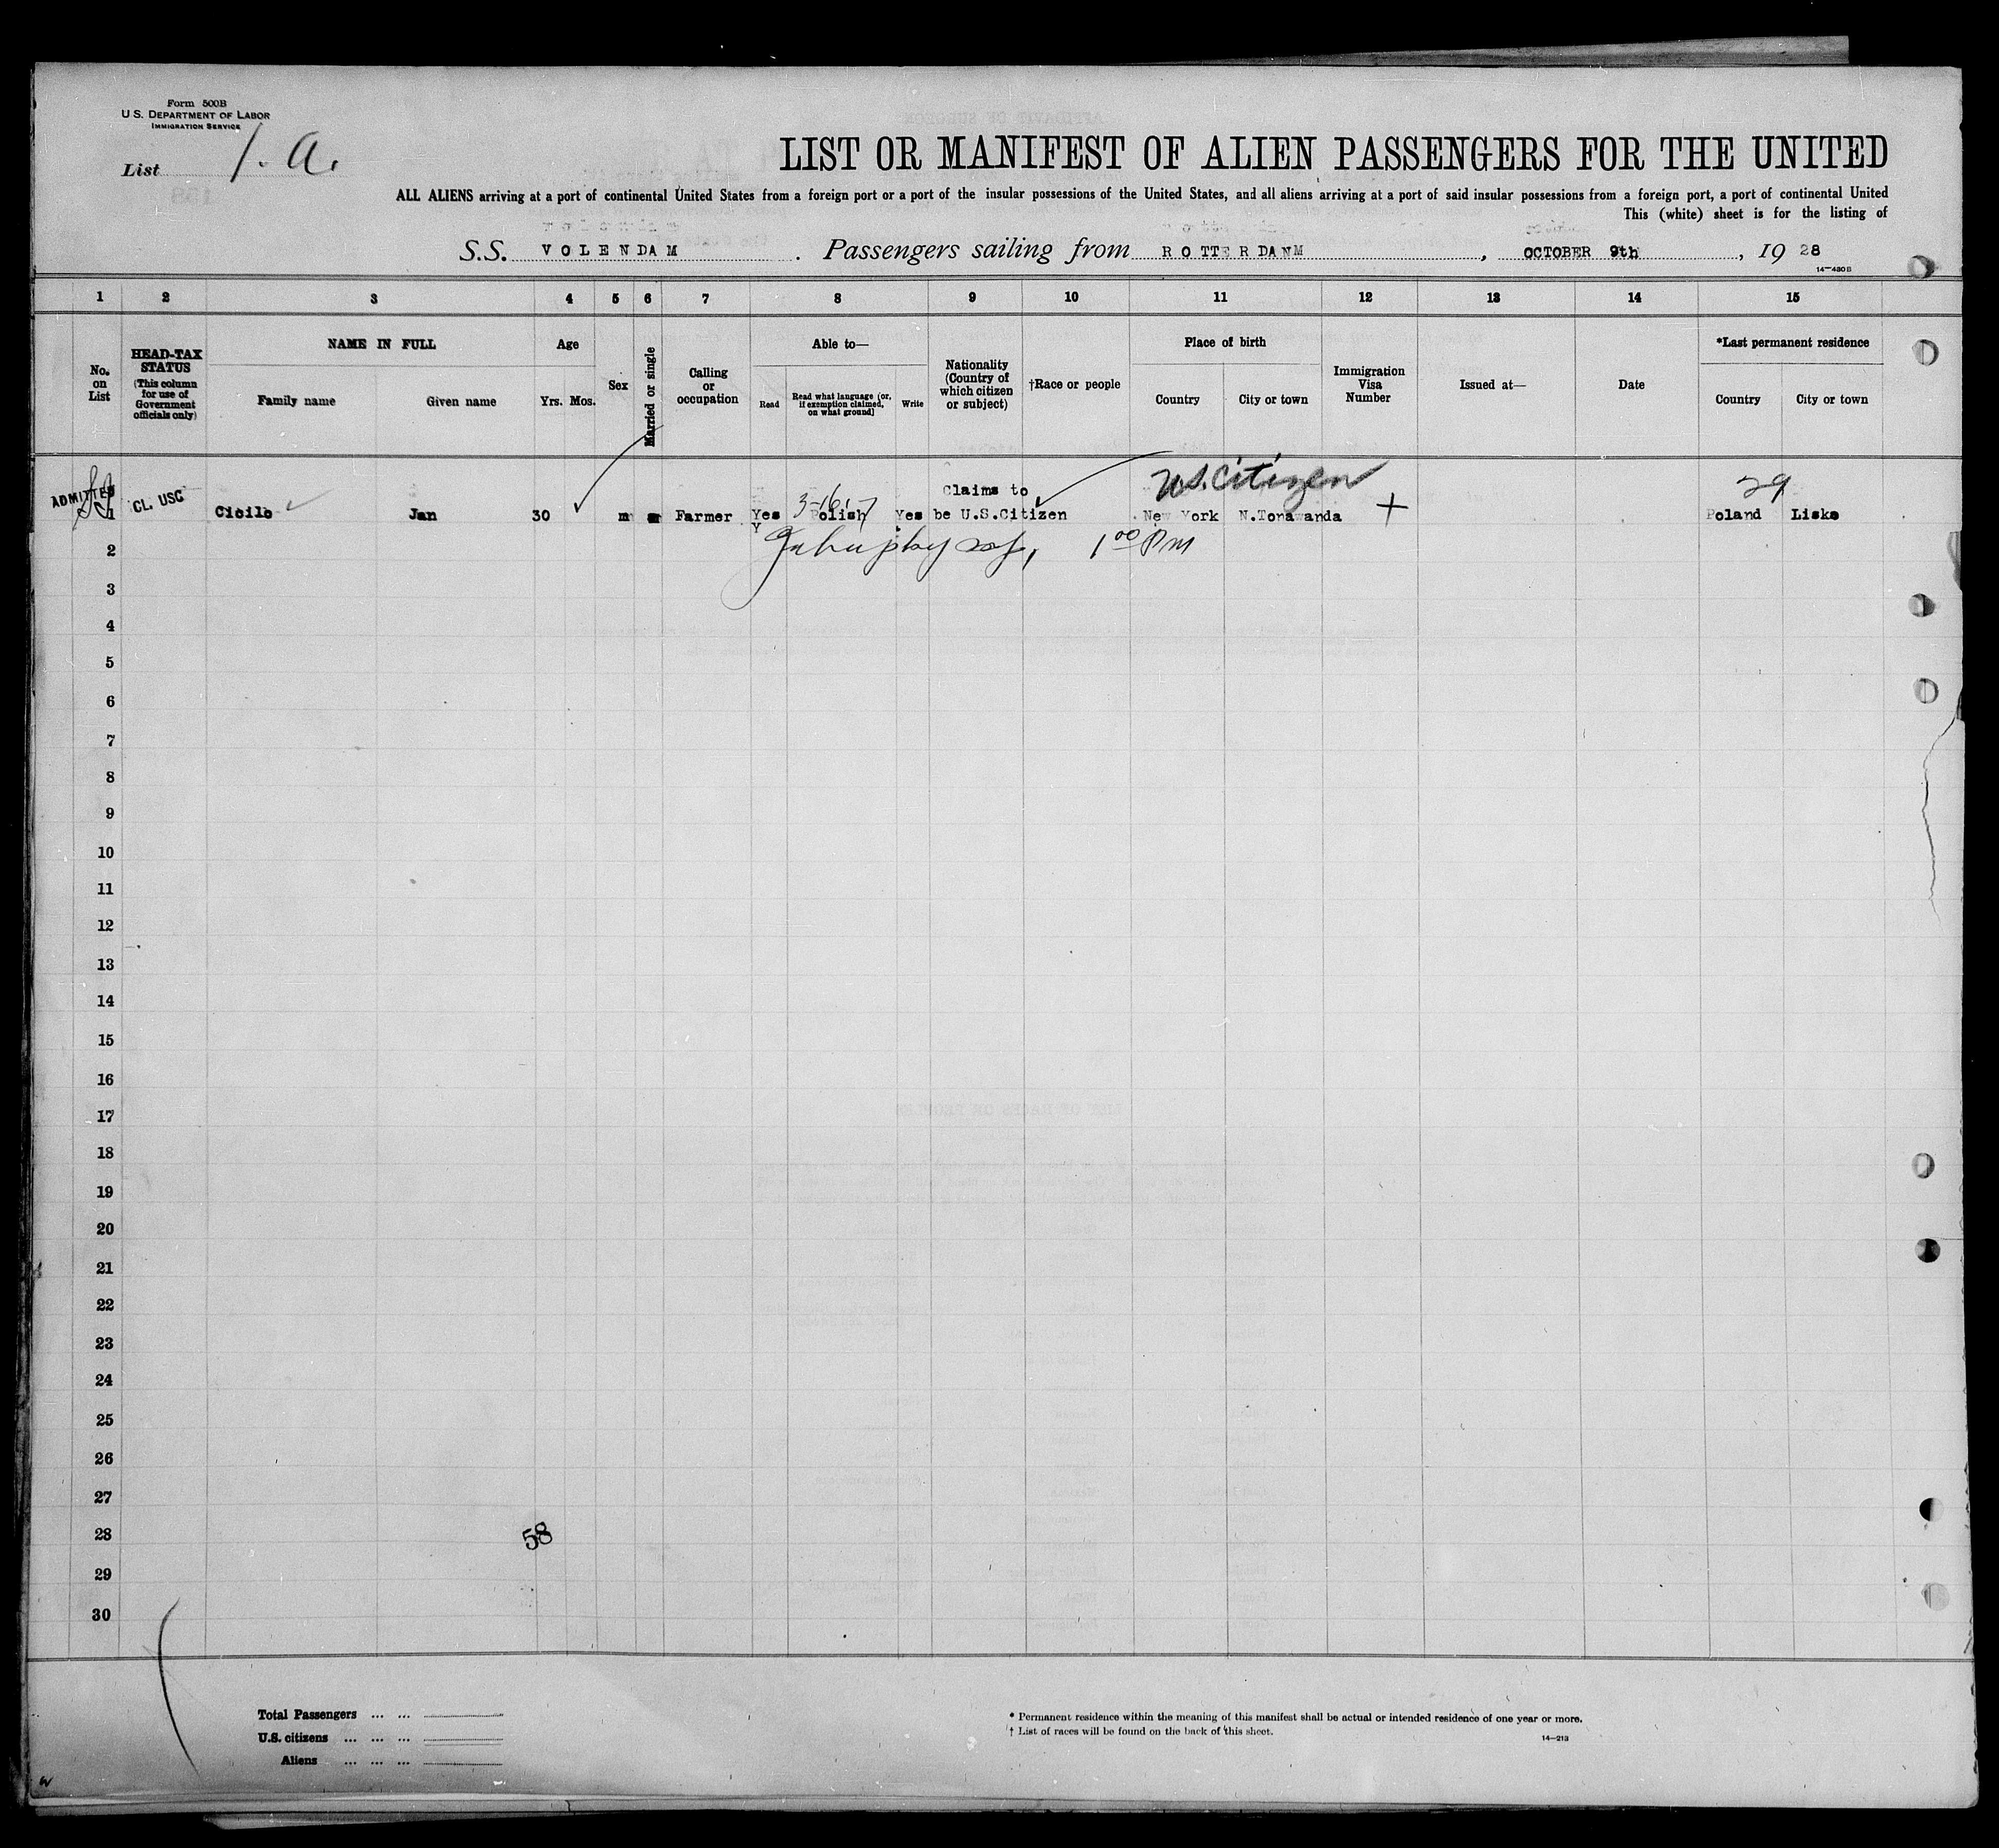 Form 500B
U. S. DEPARTMENT OF LABOR
IMMIGRATION SERVICE
List 1. A.
LIST OR MANIFEST OF ALIEN PASSENGERS FOR THE UNITED
ALL ALIENS arriving at a port of continental United States from a foreign port or a port of the insular possessions of the United States, and all aliens arriving at a port of said insular possessions from a foreign port, a port of continental United
This (white) sheet is for the listing of
S.S. VOLENDAM . Passengers sailing from ROTTERDANM , OCTOBER 9th , 19 28
14—430B
1 2 3 4 5 6 7 8 9 10 11 12 13 14 15
No. on List
HEAD-TAX STATUS
(This column for use of Government officials only)
NAME IN FULL
Family name Given name
Age
Yrs. Mos.
Sex
Married or single
Calling or occupation
Able to—
Read
Read what language (or, if exemption claimed, on what ground)
Write
Nationality (Country of which citizen or subject)
†Race or people
Place of birth
Country City or town
Immigration Visa Number
Issued at—
Date
*Last permanent residence
Country City or town
ADMITTED
CL. USC
3-16-7
Claims to
U.S. Citizen
29
1 Jan 30 m m Farmer Yes Polish Yes be U.S.Citizen New York N.Tonawanda + Poland Lisko
Y
1 00 PM
2
3
4
5
6
7
8
9
10
11
12
13
14
15
16
17
18
19
20
21
22
23
24
25
26
27
28
58
29
30
Total Passengers ... ...
U.S. citizens ... ... ...
Aliens ... ... ...
* Permanent residence within the meaning of this manifest shall be actual or intended residence of one year or more.
† List of races will be found on the back of this sheet.
14—213